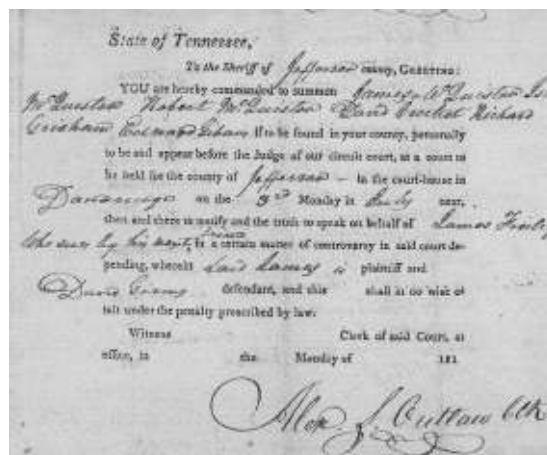 State of Tennessee,
To the Sheriff of Jefferson county, GREETING:
YOU are hereby commanded to summon James McQuistan
McQuistan Robert McQuistan David Crocket Richard
Grisham Edmond if to be found in your county, personally
to be and appear before the Judge of our circuit court, at a court to
be held for the county of Jefferson - in the court-house in
Dandridge on the 3rd Monday in July next,
then and there to testify and the truth to speak on behalf of James
who sues by his next friend in a certain matter of controversy in said court de-
pending, wherein said James is plaintiff and
David defendant, and this shall in no wise o-
mit under the penalty prescribed by law.
Witness Clerk of said Court, at
office, in the Monday of 181
Alex. S. Outlaw Clk